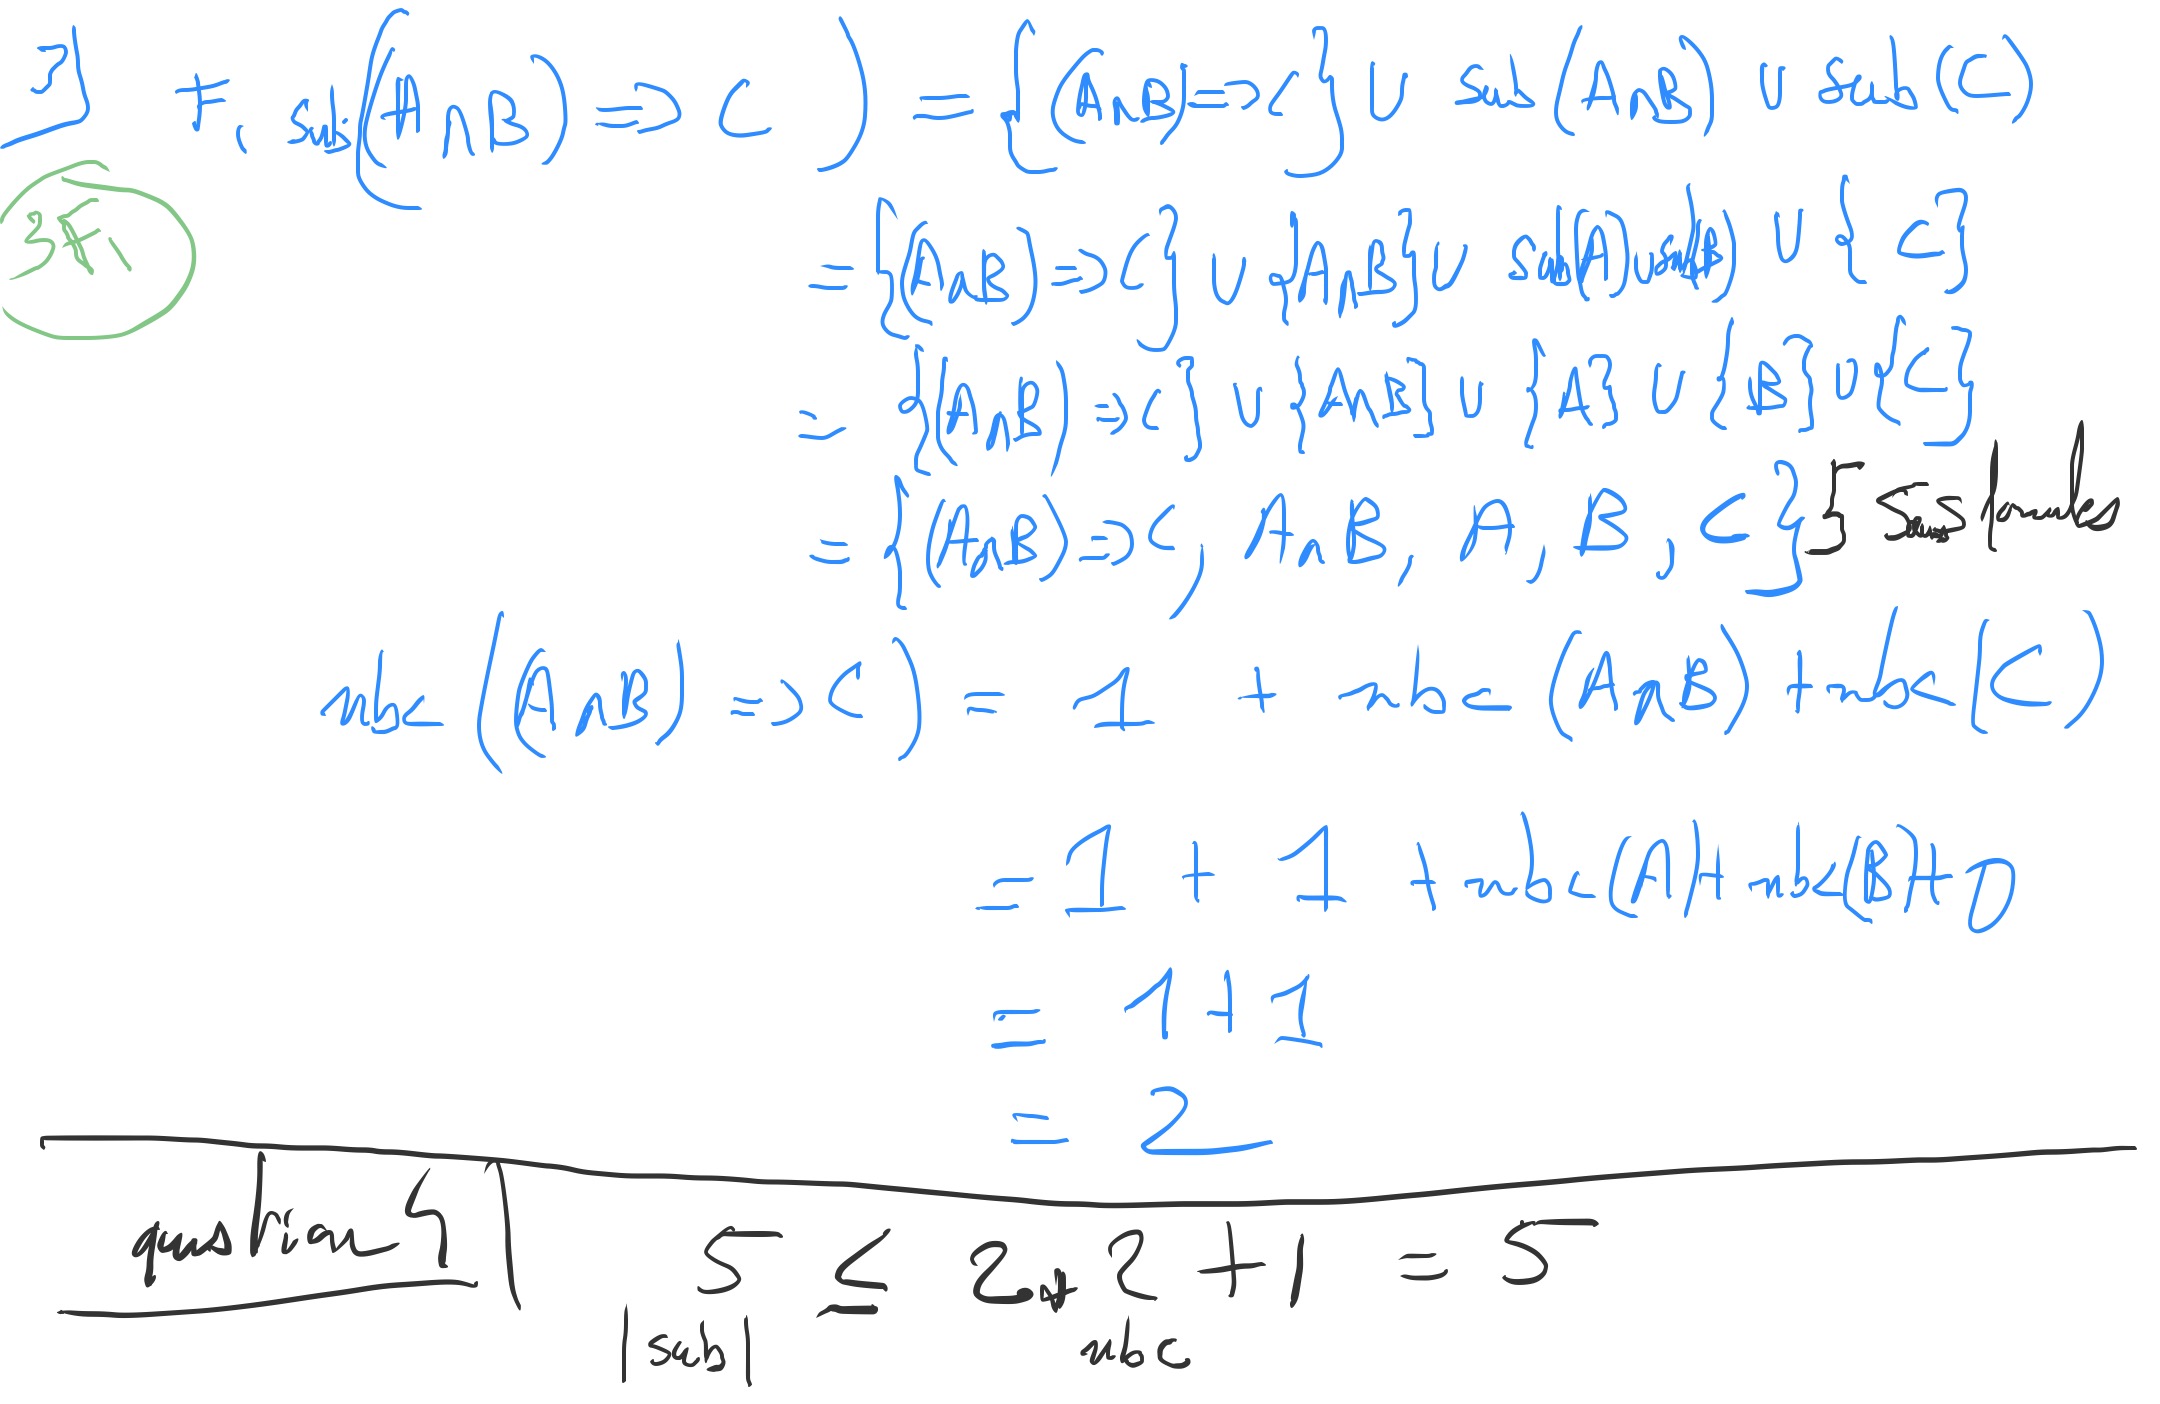 3] F1 sub((A ∧ B) => C) = {(A∧B) => C} ∪ sub(A∧B) ∪ sub(C)
3F1
= {(A∧B) => C} ∪ {A∧B} ∪ sub(A) ∪ sub(B) ∪ {C}
= {(A∧B) => C} ∪ {A∧B} ∪ {A} ∪ {B} ∪ {C}
= {(A∧B) => C, A∧B, A, B, C} } 5
nbc((A∧B) => C) = 1 + nbc(A∧B) + nbc(C)
= 1 + 1 + nbc(A) + nbc(B) + 0
= 1+1
= 2
question 4 5 ≤ 2 * 2 + 1 = 5
|sub| nbc